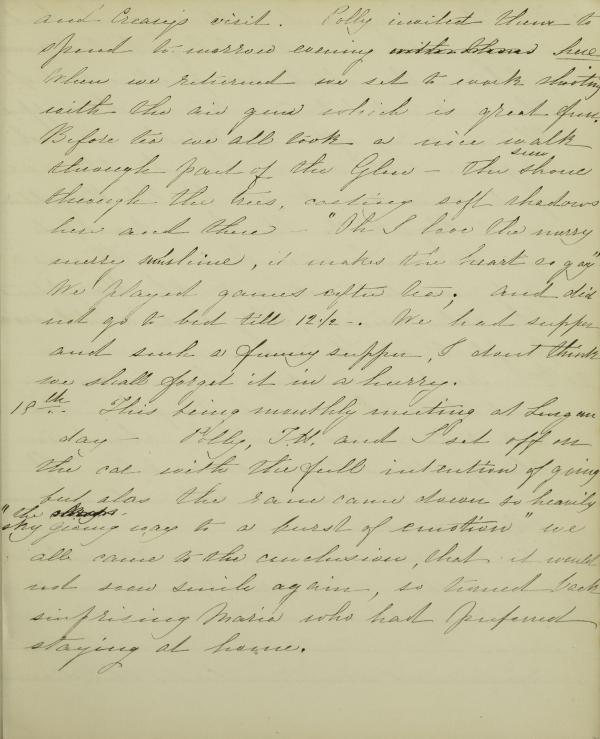 and Creary's visit. Polly invited them to
spend to-morrow evening here
When we returned we set to work shooting
with the air gun which is great fun.
Before tea we all took a nice walk
through part of the Glen - the sun shone
through the trees, casting soft shadows
here and there - "Oh I love the merry
merry sunshine, it makes the heart so gay"
We played games after tea; and did
not go to bed till 12½-. We had supper
and such a funny supper, I dont think
we shall forget it in a hurry.
19th. This being monthly meeting at Lurgan
day - Polly, T.H. and I set off on
the car with the full intention of going
but alas the rain came down so heavily
"the sky giving way to a burst of emotion" we
all came to the conclusion, that it would
not soon smile again, so turned back
surprising Maria who had preferred
staying at home.